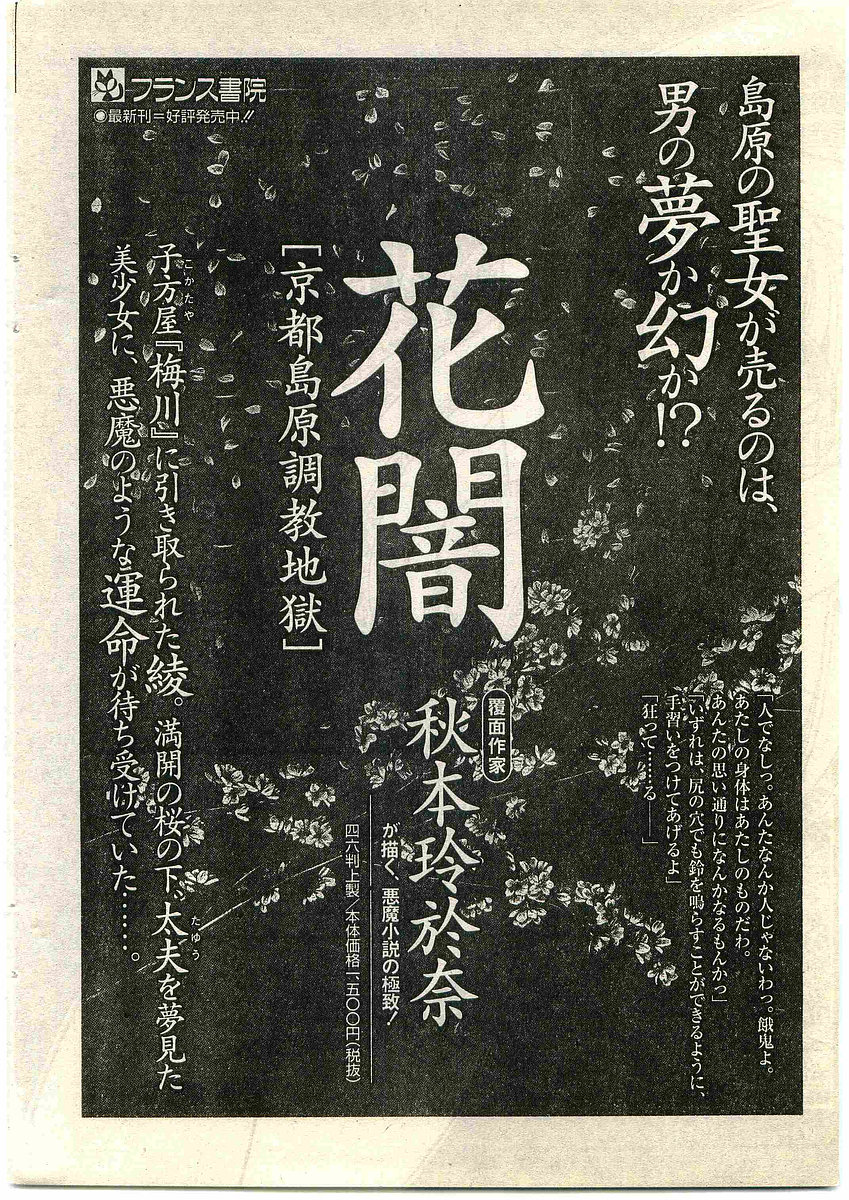 フランス書院
◉最新刊=好評発売中!!
島原の聖女が売るのは、
男の夢か幻か!?
花闇
[京都島原調教地獄]
「人でなしっ。あんたなんか人じゃないわっ。餓鬼よ。
あたしの身体はあたしのものだわ。
あんたの思い通りになんかなるもんかっ」
「いずれは、尻の穴でも鈴を鳴らすことができるように、
手習いをつけてあげるよ」
「狂って……る――」
覆面作家
秋本玲於奈
が描く、悪魔小説の極致!
四六判上製/本体価格一、五〇〇円(税抜)
こかたや
子方屋『梅川』に引き取られた綾。満開の桜の下、太夫を夢見た
たゆう
美少女に、悪魔のような運命が待ち受けていた……。